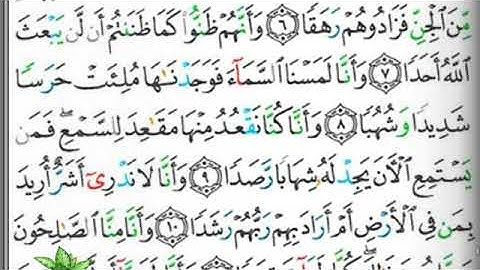 مِّنَ ٱلْجِنِّ فَزَادُوهُمْ رَهَقًا ۝٦ وَأَنَّهُمْ ظَنُّوا۟ كَمَا ظَنَنتُمْ أَن لَّن يَبْعَثَ
ٱللَّهُ أَحَدًا ۝٧ وَأَنَّا لَمَسْنَا ٱلسَّمَآءَ فَوَجَدْنَٰهَا مُلِئَتْ حَرَسًا
شَدِيدًا وَشُهُبًا ۝٨ وَأَنَّا كُنَّا نَقْعُدُ مِنْهَا مَقَٰعِدَ لِلسَّمْعِ ۖ فَمَن
يَسْتَمِعِ ٱلْءَانَ يَجِدْ لَهُۥ شِهَابًا رَّصَدًا ۝٩ وَأَنَّا لَا نَدْرِىٓ أَشَرٌّ أُرِيدَ
بِمَن فِى ٱلْأَرْضِ أَمْ أَرَادَ بِهِمْ رَبُّهُمْ رَشَدًا ۝١٠ وَأَنَّا مِنَّا ٱلصَّٰلِحُونَ